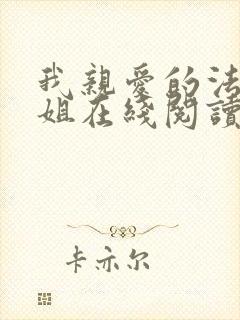 我親愛的法
姐在綫閱讀
卡亦尔